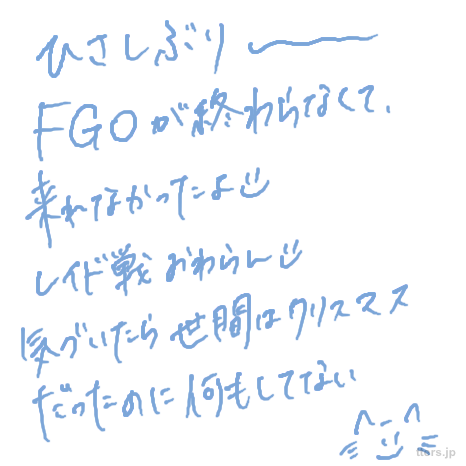 ひさしぶり〜
FGOが終わらなくて、
来れなかったよ
レイド戦おわらん
気づいたら世間はクリスマス
だったのに何もしてない
tters.jp